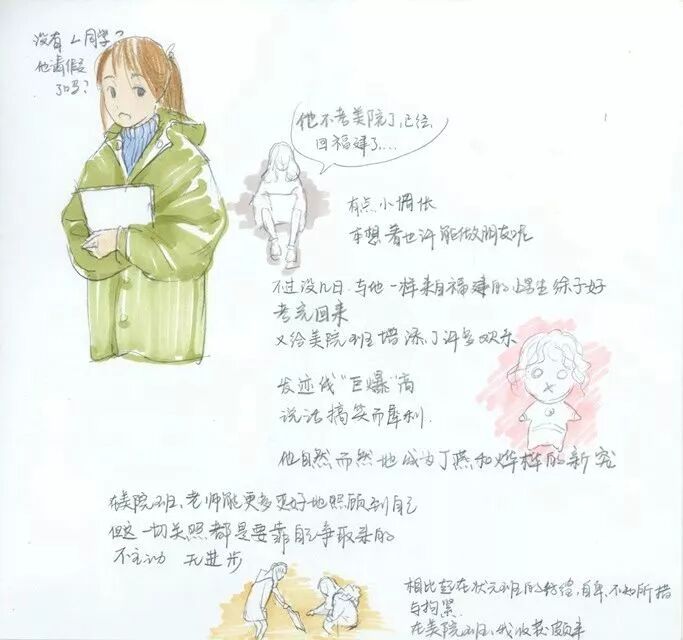 没有L同学?
他请假
了吗?
他不考美院了,已经
回福建了...
有点小惆怅
本想着也许能做朋友呢
不过没几日.与他一样来自福建的 生徐子好
考完回来
又给美院班增添了许多欢乐
发迹线“巨爆”高
说话搞笑而犀利.
他自然而然地成为丁燕和烨桦的新宠
在美院班,老师能更多更好地照顾到自己
但这一切关照都是要靠自己争取来的
不主动 无进步
相比起在状元班的 自卑,不知所措
与拘累.
在美院班,我收获颇丰